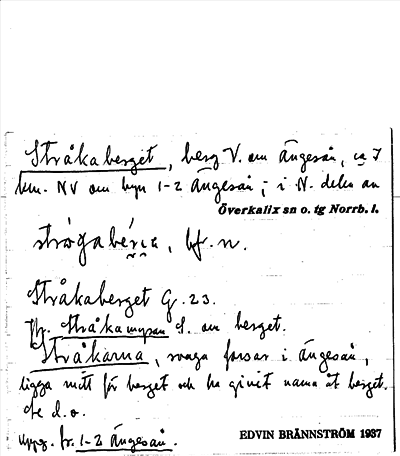 Stråkaberget, berg V. om Ängesån, ca 7
km. NV om byn 1-2 Ängesån; i N. delen av
Överkalix sn o. tg Norrb. l.
bf. n.
Stråkaberget G. 23.
Jfr. Stråkamyran S. om berget.
Stråkarna, svaga forsar i Ängesån,
ligga mitt för berget och ha givit namn åt berget.
d. o.
Uppg. fr. 1-2 Ängesån.
EDVIN BRÄNNSTRÖM 1937